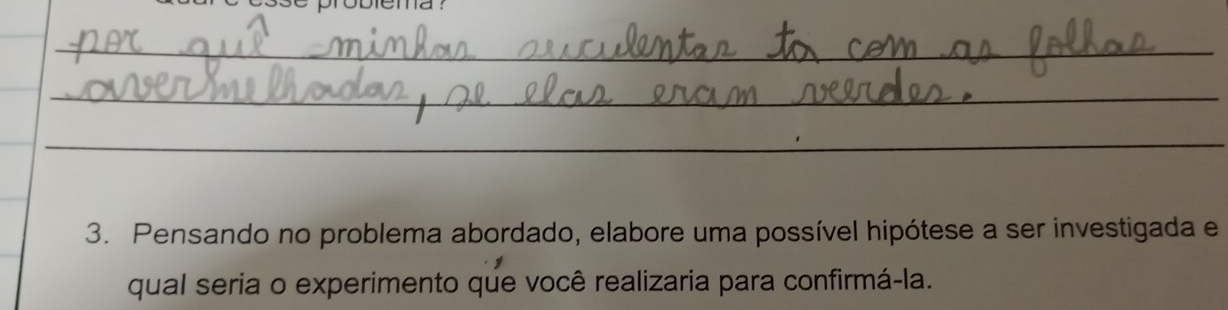 Qual é esse problema?
por quê minhas suculentas ta com as folhas
avermelhadas, se elas eram veerdes.
3. Pensando no problema abordado, elabore uma possível hipótese a ser investigada e
qual seria o experimento que você realizaria para confirmá-la.